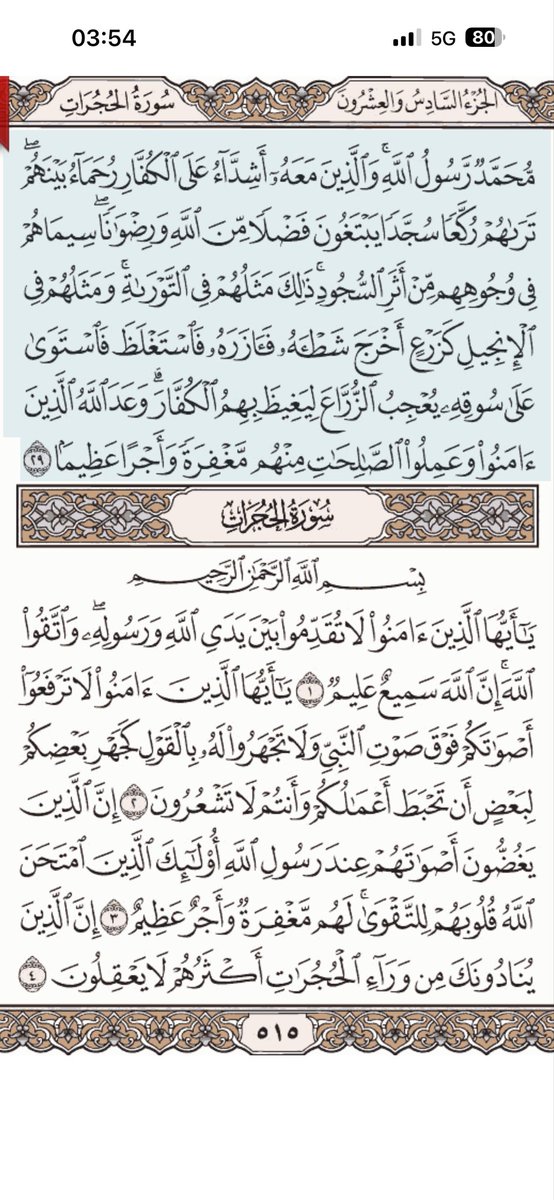 03:54
5G
80
سُورَةُ الحُجُرَاتِ
الجُزْءُ السَّادِسُ وَالعِشْرُونَ
مُّحَمَّدٌ رَّسُولُ ٱللَّهِۚ وَٱلَّذِينَ مَعَهُۥٓ أَشِدَّآءُ عَلَى ٱلۡكُفَّارِ رُحَمَآءُ بَيۡنَهُمۡۖ
تَرَىٰهُمۡ رُكَّعٗا سُجَّدٗا يَبۡتَغُونَ فَضۡلٗا مِّنَ ٱللَّهِ وَرِضۡوَٰنٗاۖ سِيمَاهُمۡ
فِي وُجُوهِهِم مِّنۡ أَثَرِ ٱلسُّجُودِۚ ذَٰلِكَ مَثَلُهُمۡ فِي ٱلتَّوۡرَىٰةِۚ وَمَثَلُهُمۡ فِي
ٱلۡإِنجِيلِ كَزَرۡعٍ أَخۡرَجَ شَطۡـَٔهُۥ فَـَٔازَرَهُۥ فَٱسۡتَغۡلَظَ فَٱسۡتَوَىٰ
عَلَىٰ سُوقِهِۦ يُعۡجِبُ ٱلزُّرَّاعَ لِيَغِيظَ بِهِمُ ٱلۡكُفَّارَۗ وَعَدَ ٱللَّهُ ٱلَّذِينَ
ءَامَنُواْ وَعَمِلُواْ ٱلصَّٰلِحَٰتِ مِنۡهُم مَّغۡفِرَةٗ وَأَجۡرًا عَظِيمَۢا ٢٩
سُورَةُ الحُجُرَاتِ
بِسۡمِ ٱللَّهِ ٱلرَّحۡمَٰنِ ٱلرَّحِيمِ
يَٰٓأَيُّهَا ٱلَّذِينَ ءَامَنُواْ لَا تُقَدِّمُواْ بَيۡنَ يَدَيِ ٱللَّهِ وَرَسُولِهِۦۖ وَٱتَّقُواْ
ٱللَّهَۚ إِنَّ ٱللَّهَ سَمِيعٌ عَلِيمٞ ١ يَٰٓأَيُّهَا ٱلَّذِينَ ءَامَنُواْ لَا تَرۡفَعُوٓاْ
أَصۡوَٰتَكُمۡ فَوۡقَ صَوۡتِ ٱلنَّبِيِّ وَلَا تَجۡهَرُواْ لَهُۥ بِٱلۡقَوۡلِ كَجَهۡرِ بَعۡضِكُمۡ
لِبَعۡضٍ أَن تَحۡبَطَ أَعۡمَٰلُكُمۡ وَأَنتُمۡ لَا تَشۡعُرُونَ ٢ إِنَّ ٱلَّذِينَ
يَغُضُّونَ أَصۡوَٰتَهُمۡ عِندَ رَسُولِ ٱللَّهِ أُوْلَٰٓئِكَ ٱلَّذِينَ ٱمۡتَحَنَ
ٱللَّهُ قُلُوبَهُمۡ لِلتَّقۡوَىٰۚ لَهُم مَّغۡفِرَةٞ وَأَجۡرٌ عَظِيمٌ ٣ إِنَّ ٱلَّذِينَ
يُنَادُونَكَ مِن وَرَآءِ ٱلۡحُجُرَٰتِ أَكۡثَرُهُمۡ لَا يَعۡقِلُونَ ٤
٥١٥